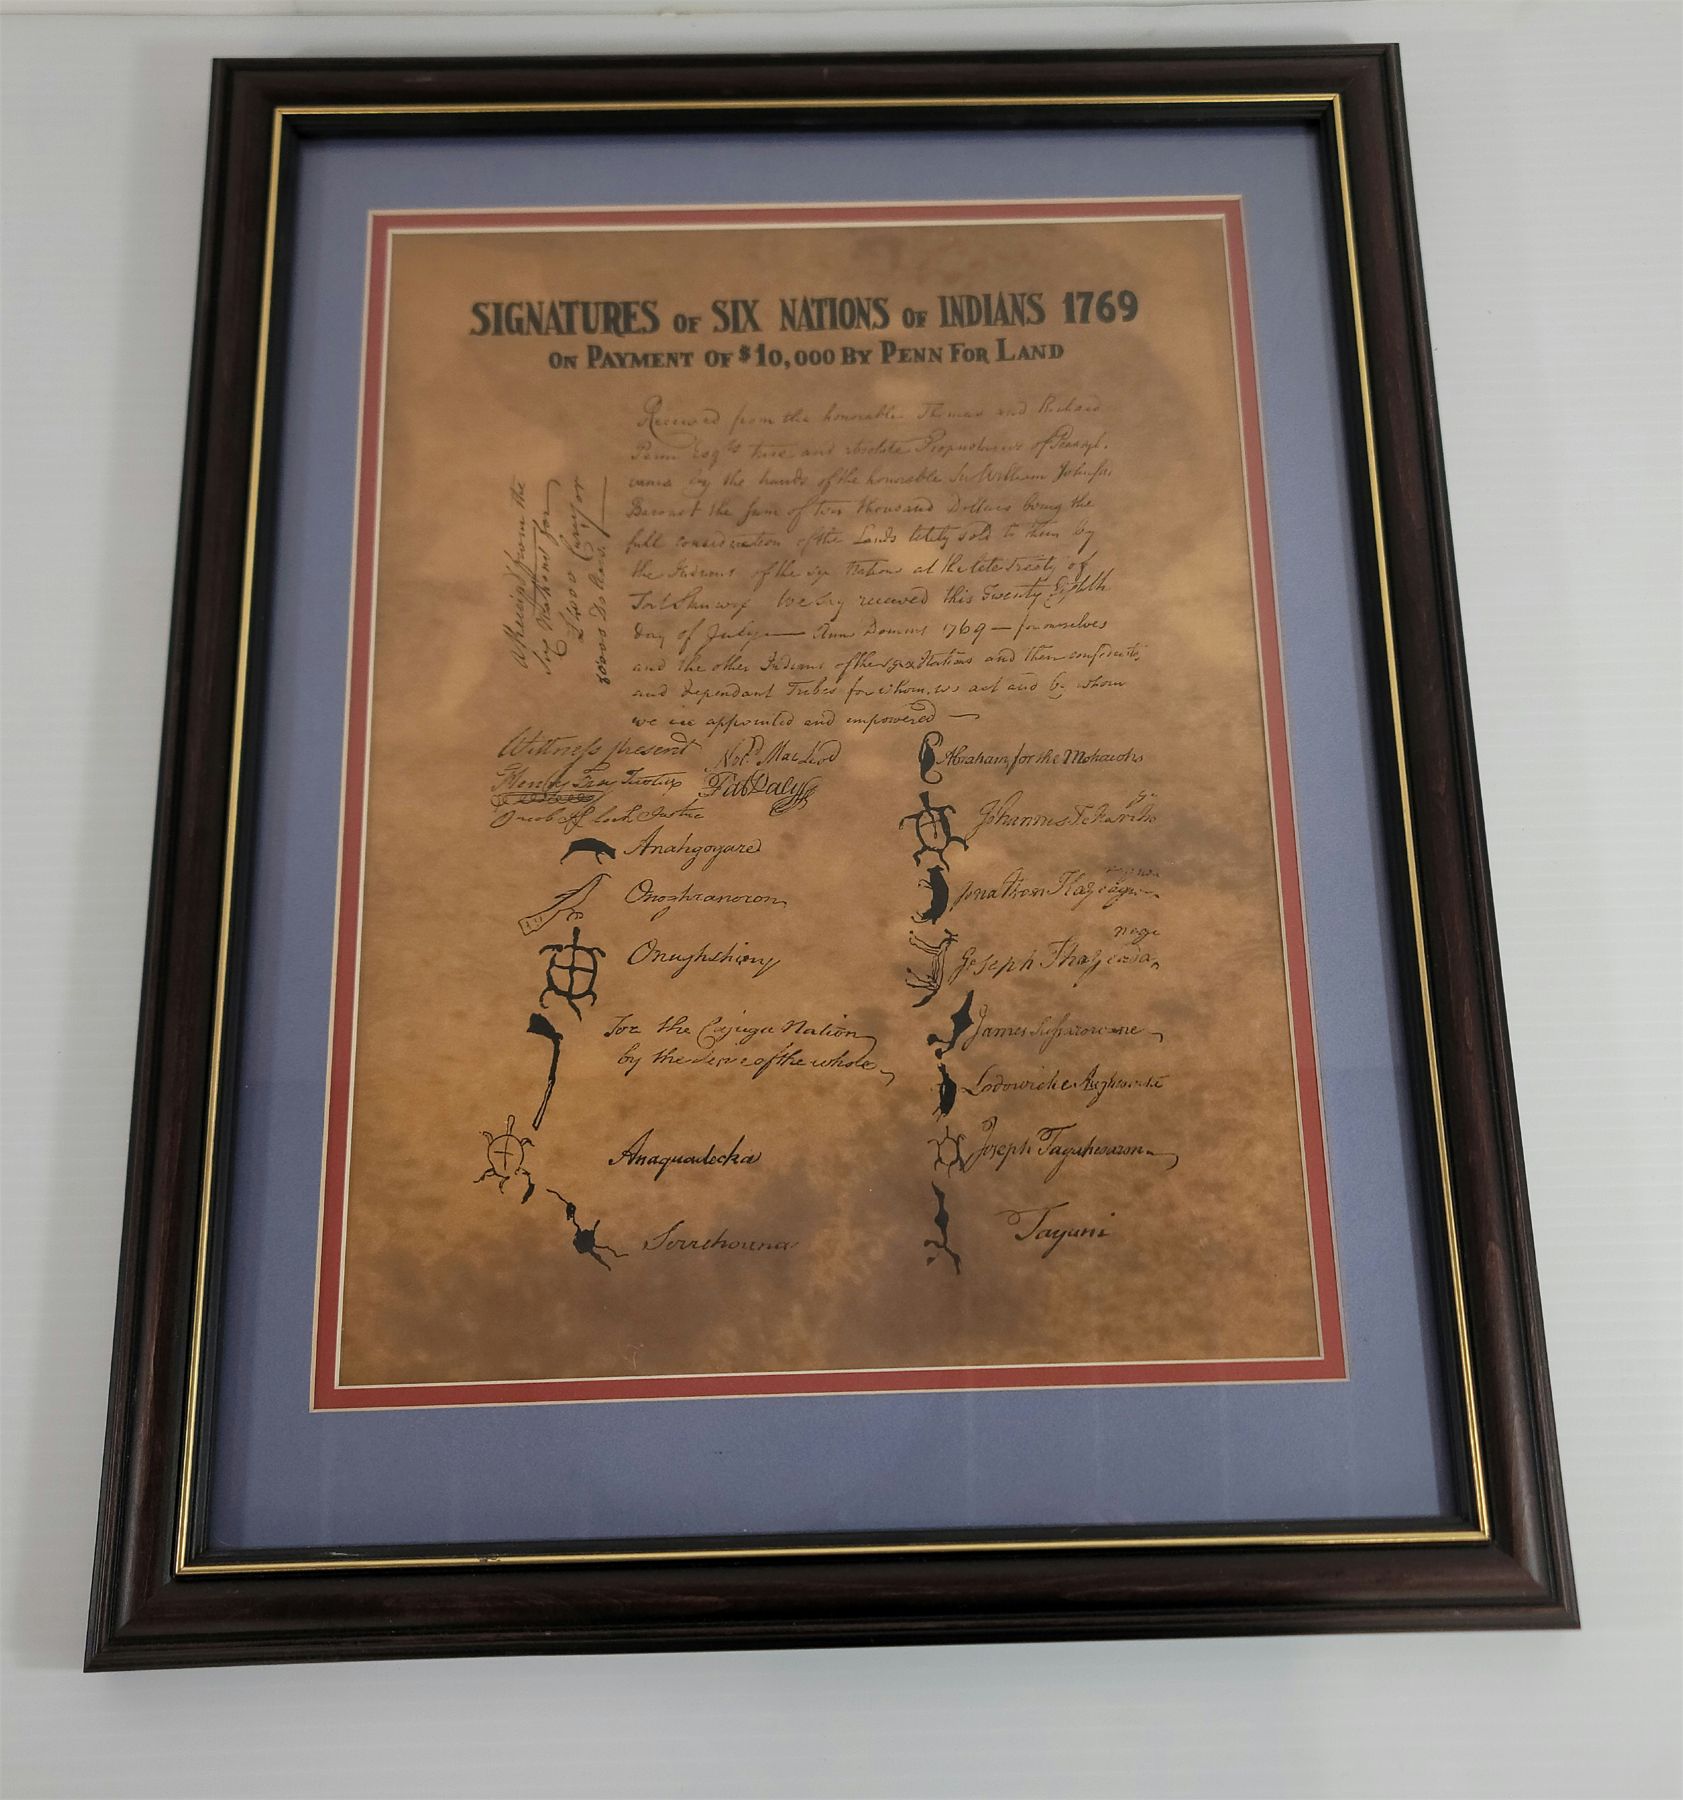 SIGNATURES OF SIX NATIONS OF INDIANS 1769
ON PAYMENT OF $10,000 BY PENN FOR LAND
Received from the honorable Thomas and Richard
Penn Esqrs true and absolute Proprietaries of Pennsyl.
vania by the hands of the honorable Sir William Johnson
Baronet the sum of ten thousand Dollars being the
full consideration of the Lands lately sold to them by
the Indians of the six Nations at the late treaty of
Fort Stanwix We say received this Twenty Eighth
day of July — Ann Domini 1769 — for ourselves
and the other Indians of the six Nations and their confederates
and dependant Tribes for whom we act and by whom
we are appointed and empowered —
A Receipt from the
Six Nations for
10000 Dollars.
Wittness present
Norl. MacLeod
Henry Frey Justice
Jacob Justice
Abraham for the Mohawks
Johannes Tekariho
ga
Anahgogare
Jonathan
Onoshranoron
Joseph
Onughshiony
James
For the Cajuga Nation
by the desire of the whole
Lodowicke
Anaguadecka
Joseph Taguhwaron
Serrehouna
Tayuni